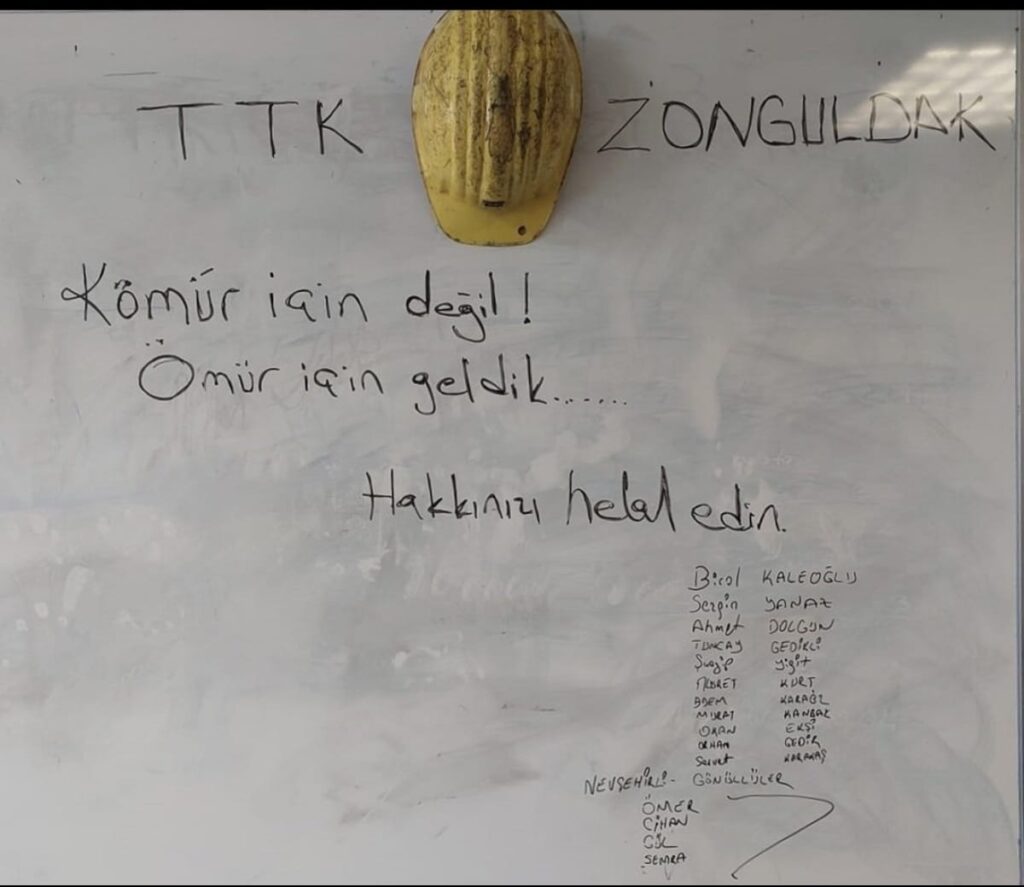 TTK ZONGULDAK
Kömür için değil!
Ömür için geldik.......
Hakkınızı helal edin.
Birol KALEOĞLU
Sezgin YANAZ
Ahmet DOLGUN
TUNCAY GEDİKLİ
Yiğit
KURT
ADEM
MURAT
OKAN EKŞİ
ORHAN GEDİK
Servet KARAKAŞ
NEVŞEHİRLİ- GÖNÜLLÜLER
ÖMER
CİHAN
GÜL
SEMRA